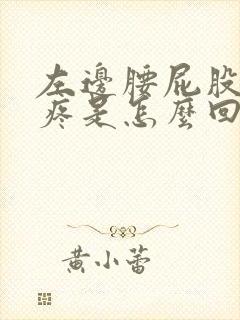 左邊腰屁股
疼是怎麼回
黃小蕾